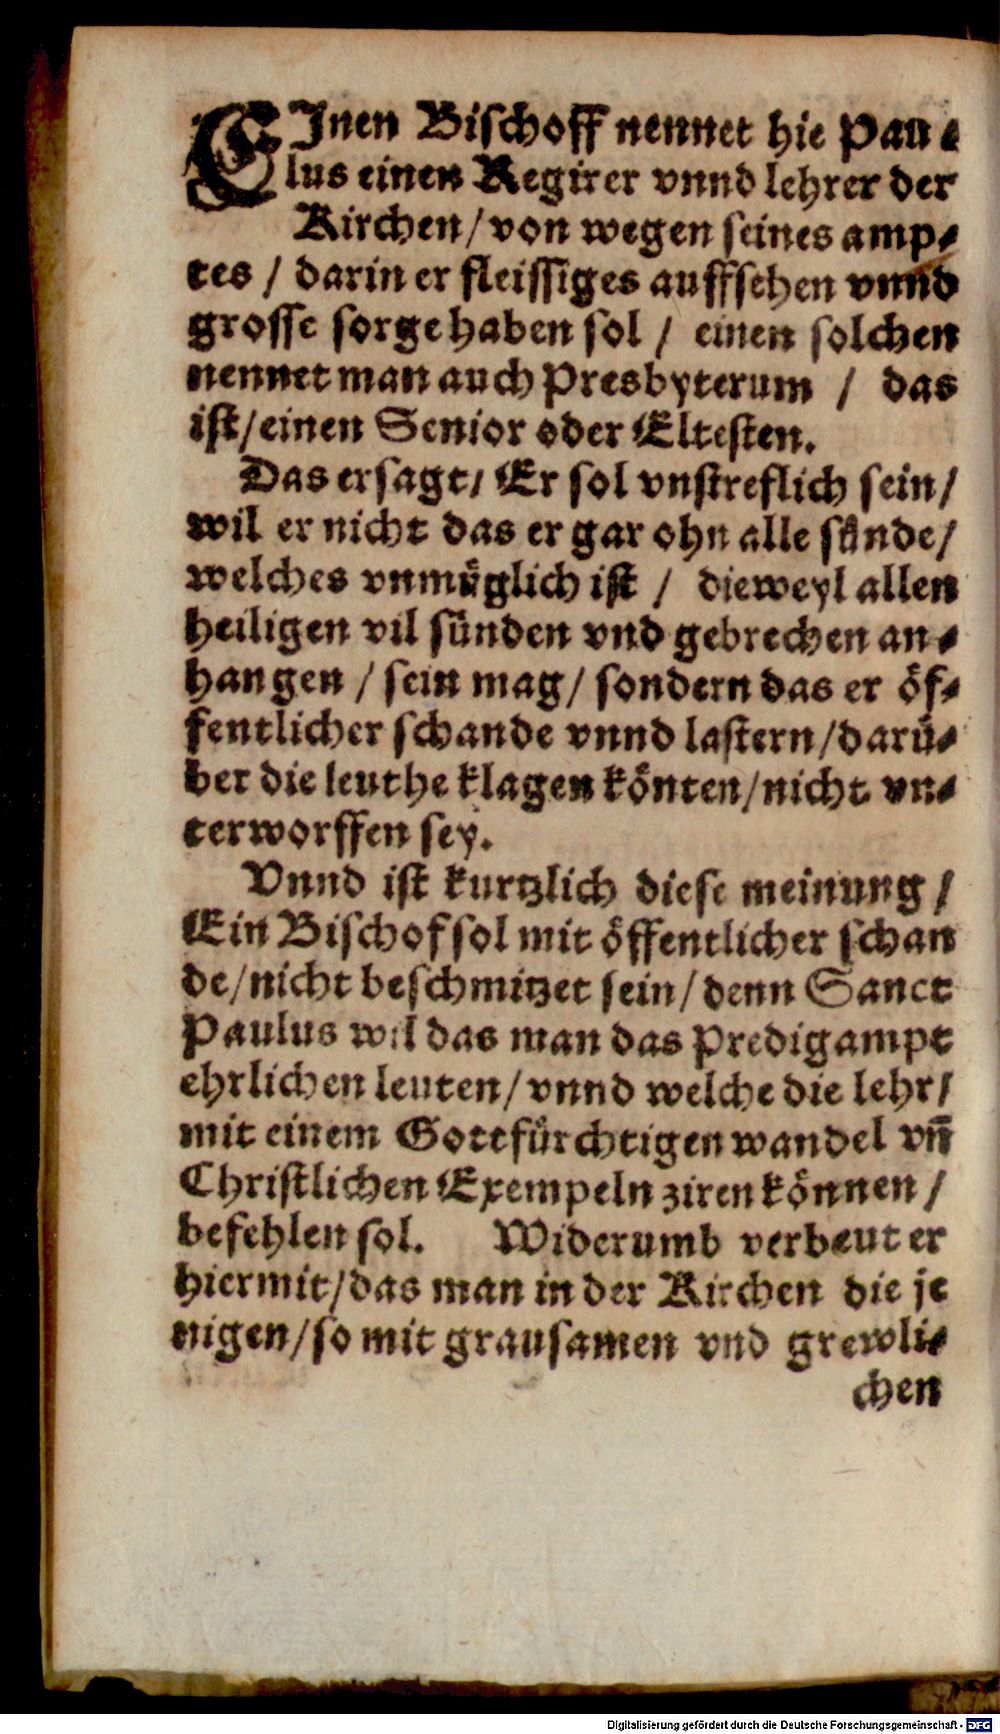 EJnen Bischoff nennet hie Pau⸗
lus einen Regirer vnnd lehrer der
Kirchen/ von wegen seines amp⸗
tes / darin er fleissiges auffsehen vnnd
grosse sorge haben sol / einen solchen
nennet man auch Presbyterum / das
ist/ einen Senior oder Eltesten.
Das er sagt/ Er sol vnstreflich sein/
wil er nicht das er gar ohn alle sünde/
welches vnmüglich ist / dieweyl allen
heiligen vil sünden vnd gebrechen an⸗
hangen / sein mag/ sondern das er öf⸗
fentlicher schande vnnd lastern/ darü⸗
ber die leuthe klagen könten/ nicht vn⸗
terworffen sey.
Vnnd ist kurtzlich diese meinung /
Ein Bischof sol mit öffentlicher schan
de/ nicht beschmitzet sein/ denn Sanct
Paulus wil das man das Predigampt
ehrlichen leuten/ vnnd welche die lehr/
mit einem Gottfürchtigen wandel vn̄
Christlichen Exempeln ziren können /
befehlen sol. Widerumb verbeut er
hiermit/ das man in der Kirchen die je
nigen/ so mit grausamen vnd grewli⸗
chen
Digitalisierung gefördert durch die Deutsche Forschungsgemeinschaft - DFG